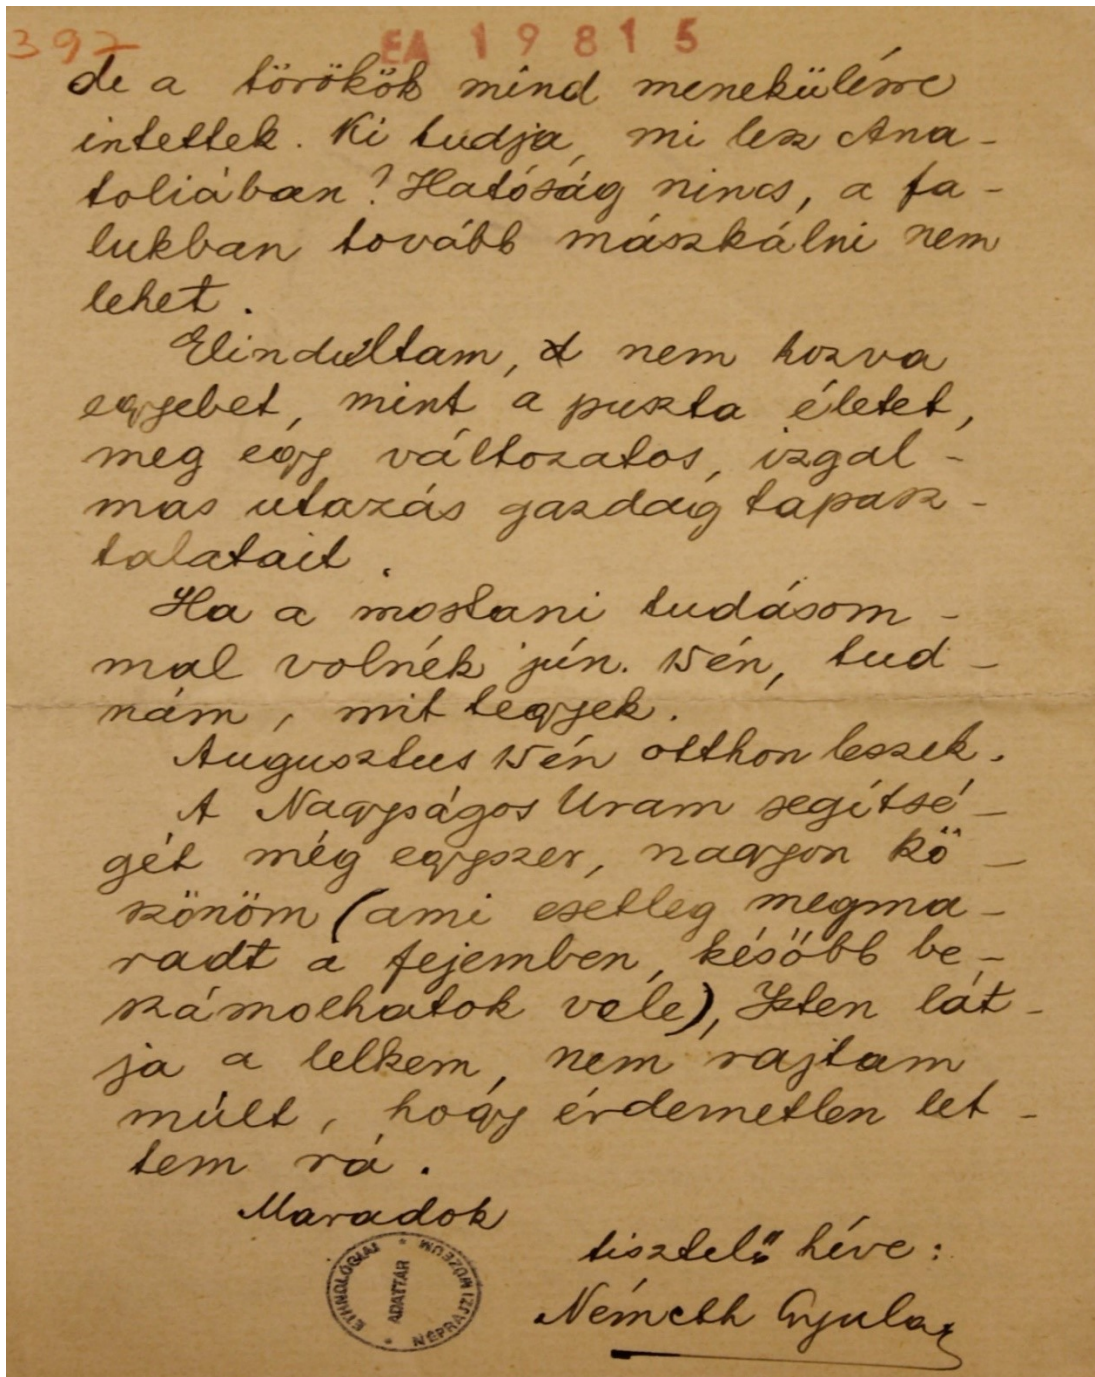 397
EA 19815
de a törökök mind menekülésre
intettek. Ki tudja, mi lesz Ana-
toliában? Hatóság nincs, a fa-
lukban tovább mászkálni nem
lehet.
Elindultam, nem hozva
egyebet, mint a puszta életet,
meg egy változatos, izgal-
mas utazás gazdag tapasz-
talatait.
Ha a mostani tudásom-
mal volnék jún. 15én, tud-
nám, mit tegyek.
Augusztus 15én otthon leszek.
A Nagyságos Uram segítsé-
gét még egyszer, nagyon kö-
szönöm (ami esetleg megma-
radt a fejemben, később be-
számolhatok vele), Isten lát-
ja a lelkem, nem rajtam
múlt, hogy érdemetlen let-
tem rá.
Maradok
tisztelő híve:
Németh Gyula
ETHNOLÓGIAI ADATTÁR
NÉPRAJZI MÚZEUM